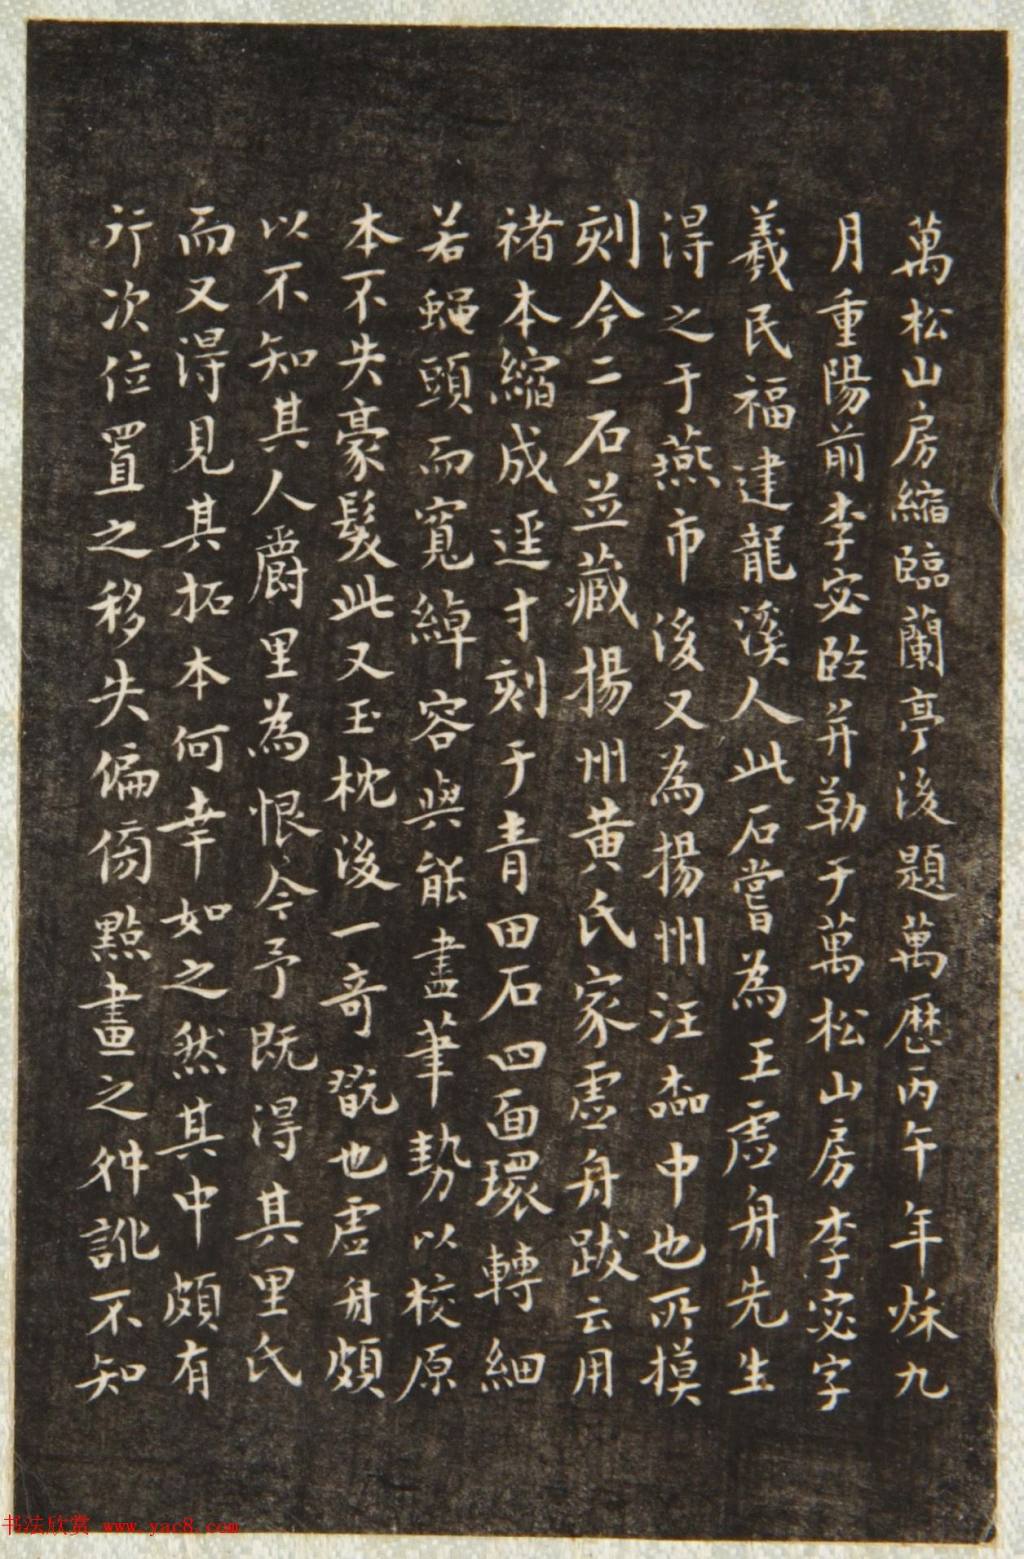 萬松山房縮臨蘭亭後題萬曆丙午年秌九
月重陽前李宓臨并勒于萬松山房李宓字
羲民福建龍溪人此石嘗為王虛舟先生
得之于燕市後又為揚州汪中也所摸
刻今二石並藏揚州黃氏家虛舟跋云用
褚本縮成逕寸刻于青田石四面環轉細
若蠅頭而寬綽容與能盡筆勢以校原
本不失豪髮此又玉枕後一奇翫也虛舟頗
以不知其人爵里為恨今予既得其里氏
而又得見其拓本何幸如之然其中頗有
行次位置之移失偏傍點畫之舛訛不知
书法欣赏 www.yac8.com